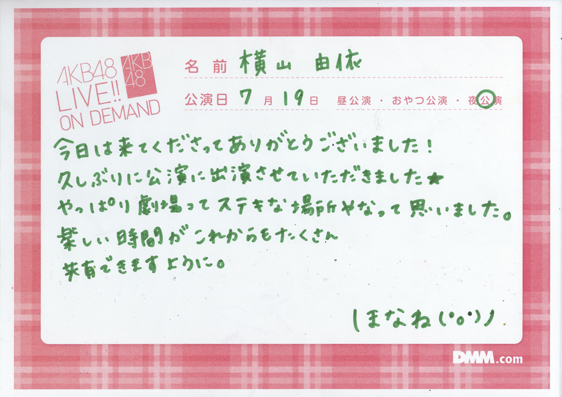 AKB48
LIVE!!
ON DEMAND
AKB
48
名前 横山 由依
公演日 7月19日 昼公演・おやつ公演・夜公演
今日は来てくださってありがとうございました!
久しぶりに公演に出演させていただきました★
やっぱり劇場ってステキな場所やなって思いました。
楽しい時間がこれからもたくさん
共有できますように。
ほなね(°o°)ノ
DMM.com